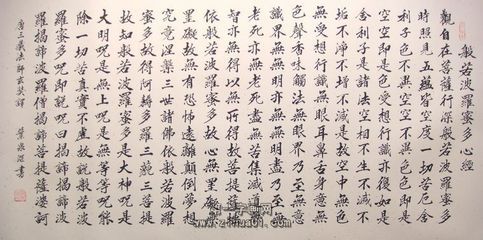 般若波羅蜜多心經
觀自在菩薩行深般若波羅蜜多
時照見五蘊皆空度一切苦厄舍
利子色不異空空不異色色即是
空空即是色受想行識亦復如是
舍利子是諸法空相不生不滅不
垢不淨不增不減是故空中無色
無受想行識無眼耳鼻舌身意無
色聲香味觸法無眼界乃至無意
識界無無明亦無無明盡乃至無
老死亦無老死盡無苦集滅道無
智亦無得以無所得故菩提薩埵
依般若波羅蜜多故心無罣礙無
罣礙故無有恐怖遠離顛倒夢想
究竟涅槃三世諸佛依般若波羅
蜜多故得阿耨多羅三藐三菩提
故知般若波羅蜜多是大神呪是
大明呪是無上呪是無等等呪能
除一切苦真實不虛故說般若波
羅蜜多呪即說呪曰揭諦揭諦波
羅揭諦波羅僧揭諦菩提薩婆訶
唐三藏法師玄奘譯 葉 書